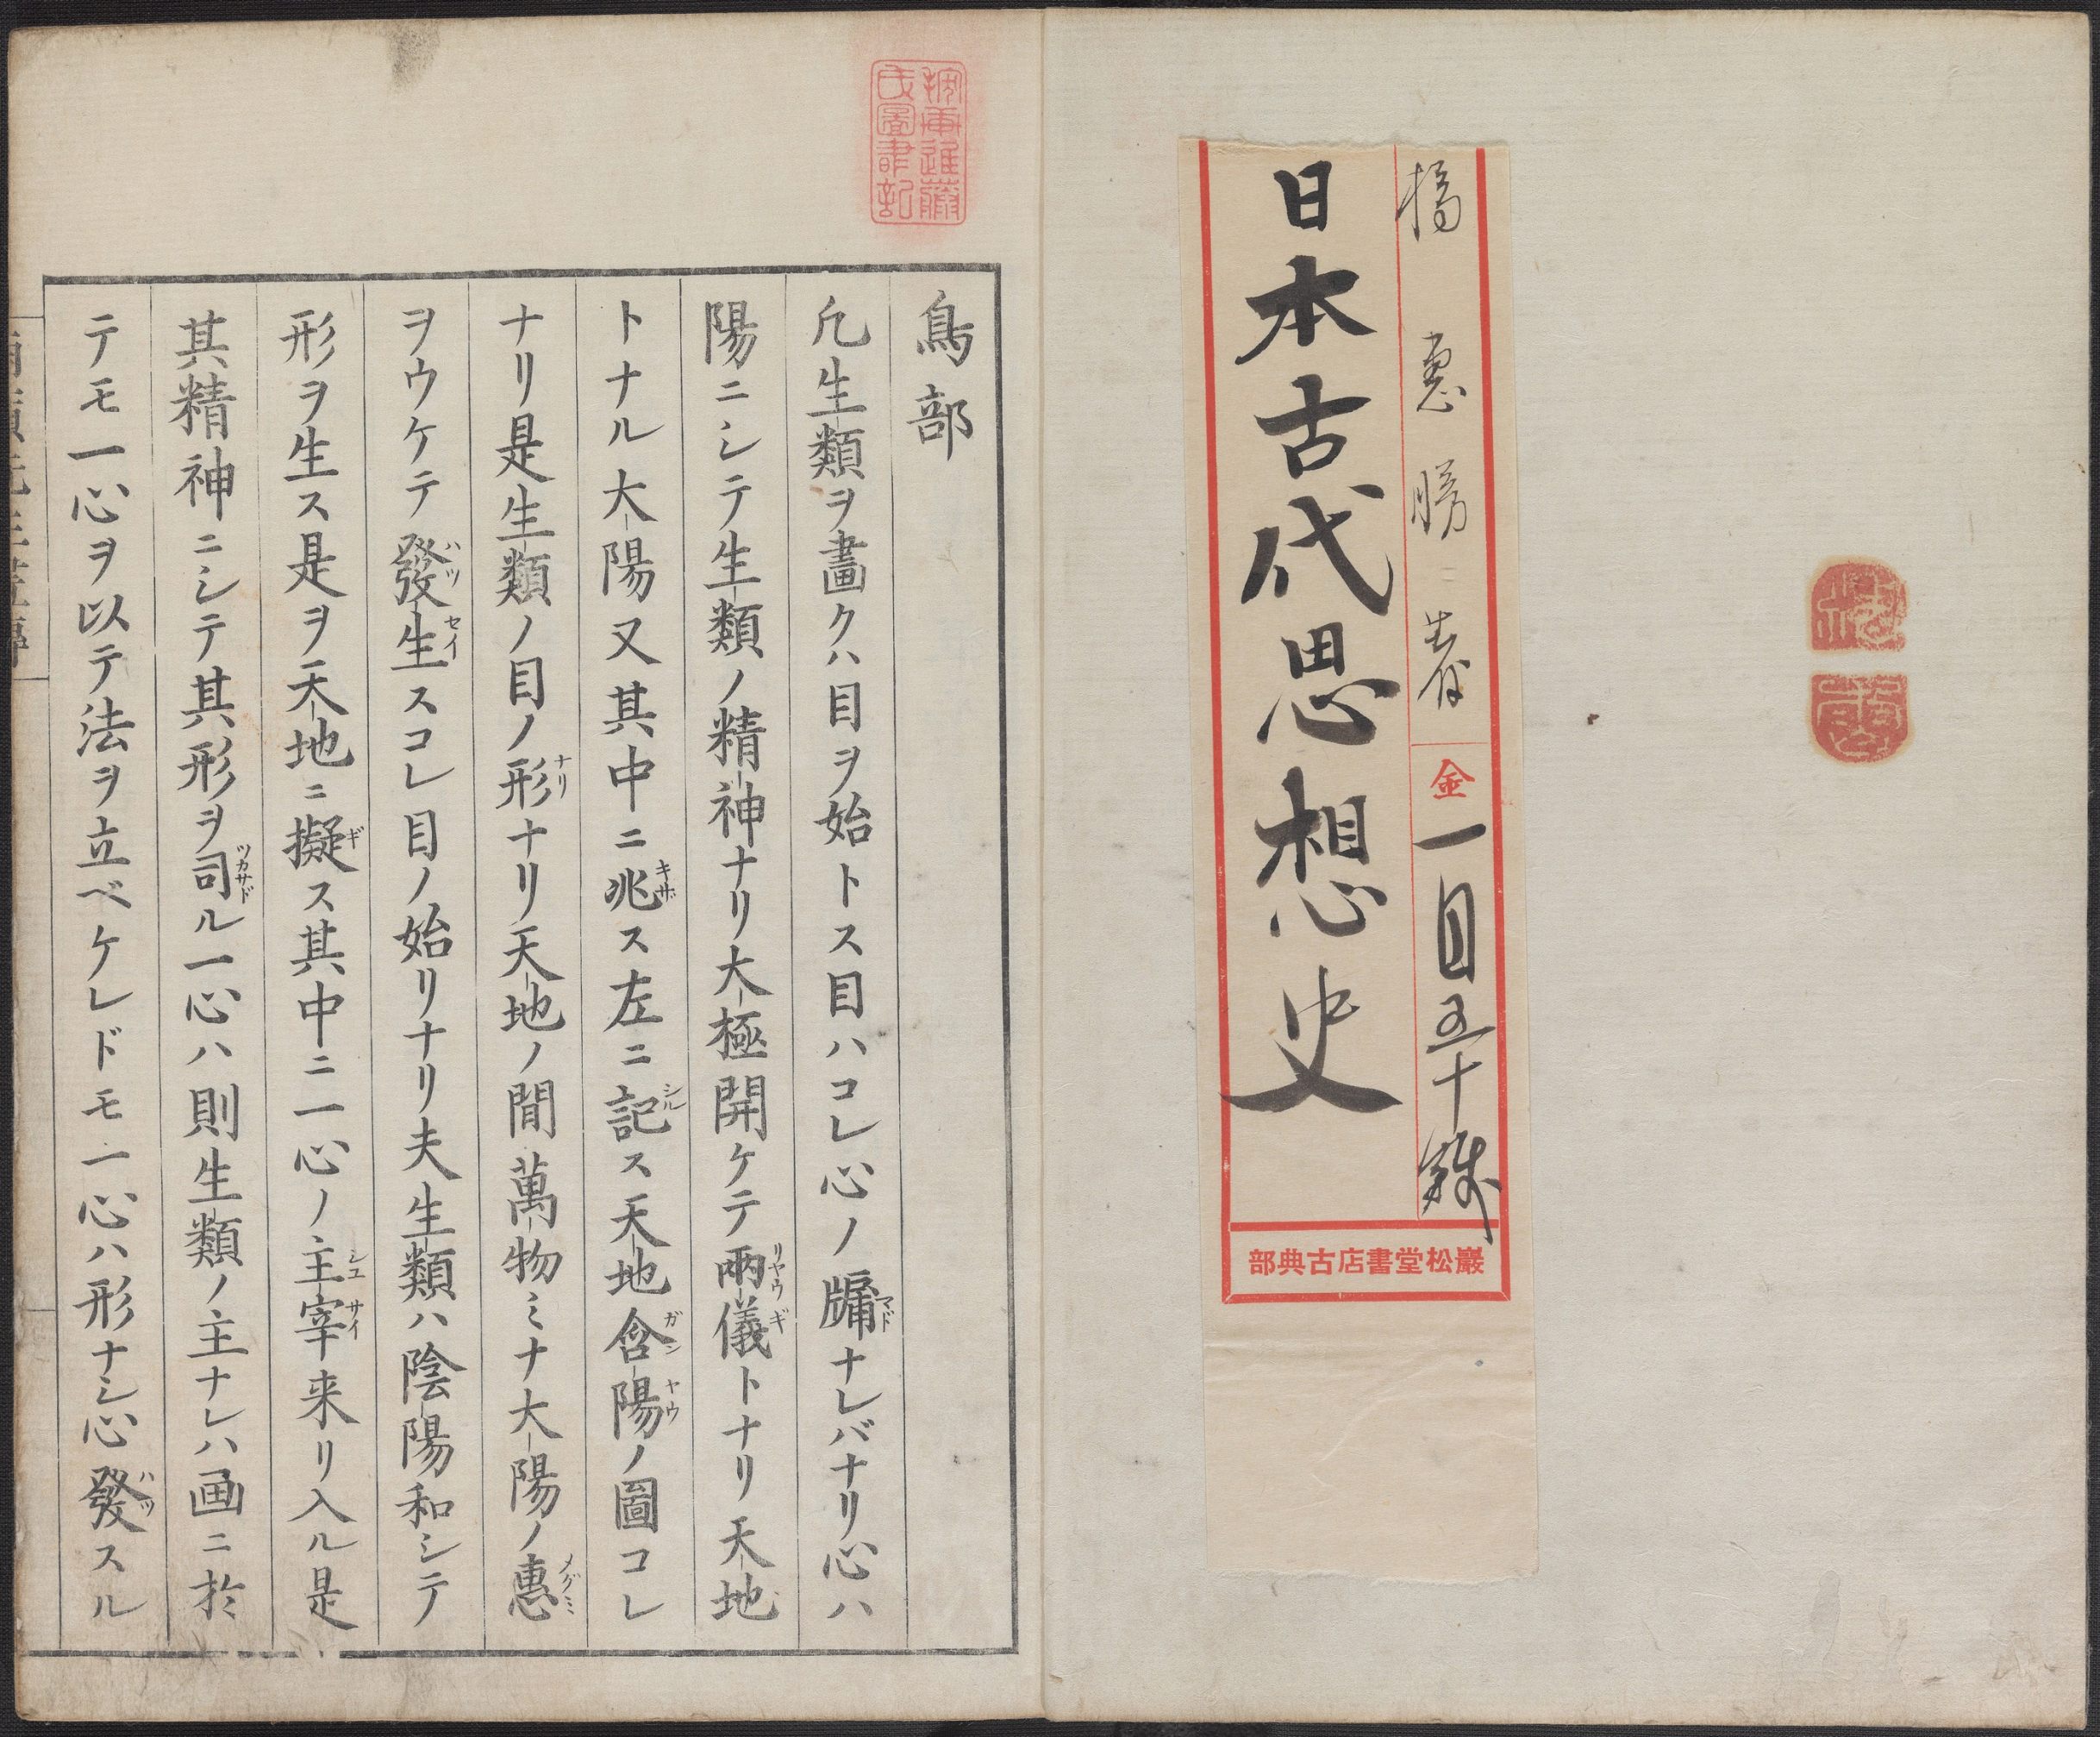 橘 惠勝 著
金一圓五十錢
日本古代思想史
巖松堂書店古典部
鳥部
凡生類ヲ畫クハ目ヲ始トス目ハコレ心ノ牗マドナレバナリ心ハ
陽ニシテ生類ノ精神ナリ大極開ケテ兩儀リヤウギトナリ天地
トナル大陽又其中ニ兆キザス左ニ記シルス天地含陽ガンヤウノ圖コレ
ナリ是生類ノ目ノ形ナリナリ天地ノ間萬物ミナ大陽ノ惠メグミ
ヲウケテ發生ハツセイスコレ目ノ始リナリ夫生類ハ陰陽和シテ
形ヲ生ス是ヲ天地ニ擬ギス其中ニ一心ノ主宰シユサイ来リ入ル是
其精神ニシテ其形ヲ司ツカサドル一心ハ則生類ノ主ナレハ画ニ於
テモ一心ヲ以テ法ヲ立ベケレドモ一心ハ形ナシ心發ハツスル